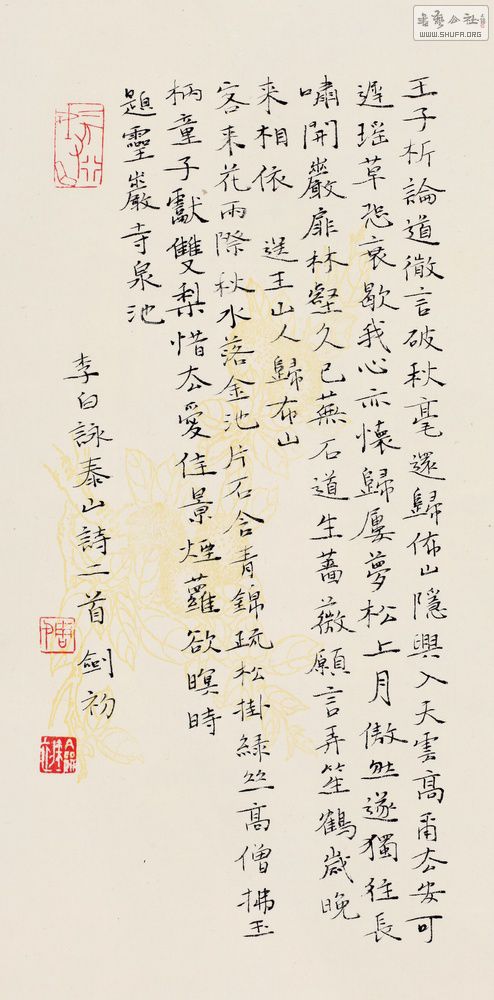 王子析論道微言破秋毫還歸佈山隱興入天雲高爾去安可
遲瑶草恐衰歇我心亦懷歸屢夢松上月傲然遂獨往長
嘯開巖扉林壑久已蕪石道生薔薇願言弄笙鶴歲晚
来相依 送王山人歸布山
客来花雨際秋水落金池片石含青錦疏松掛緑丝高僧拂玉
柄童子獻雙梨惜去愛佳景煙蘿欲暝時
題靈巖寺泉池
李白詠泰山詩二首 劍初
WWW.SHUFA.ORG